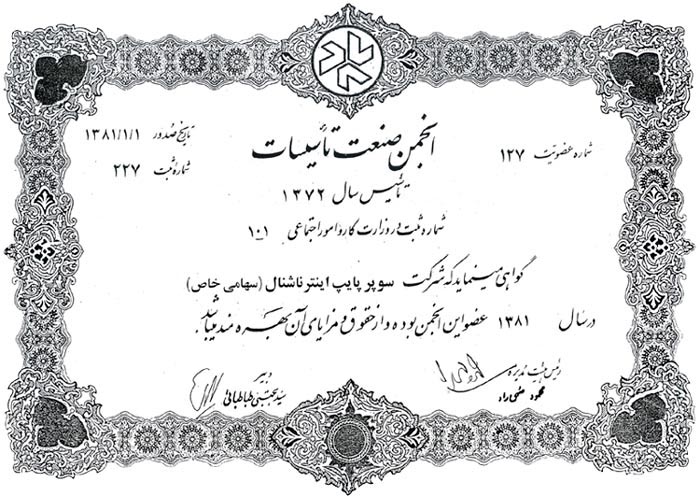 انجمن صنعت تأسیسات
شماره عضویت ۱۲۷
تاریخ صدور ۱۳۸۱/۱/۱
شماره ثبت ۲۲۷
تأسیس سال ۱۳۷۲
شماره ثبت در وزارت کار و امور اجتماعی ۱-۱۰
گواهی مینماید که شرکت سوپر پایپ اینترناشنال (سهامی خاص)
در سال ۱۳۸۱ عضو این انجمن بوده و از حقوق و مزایای آن بهره مند میباشد.
رئیس هیئت مدیره
محمود
دبیر
سید مجتبی طباطبائی